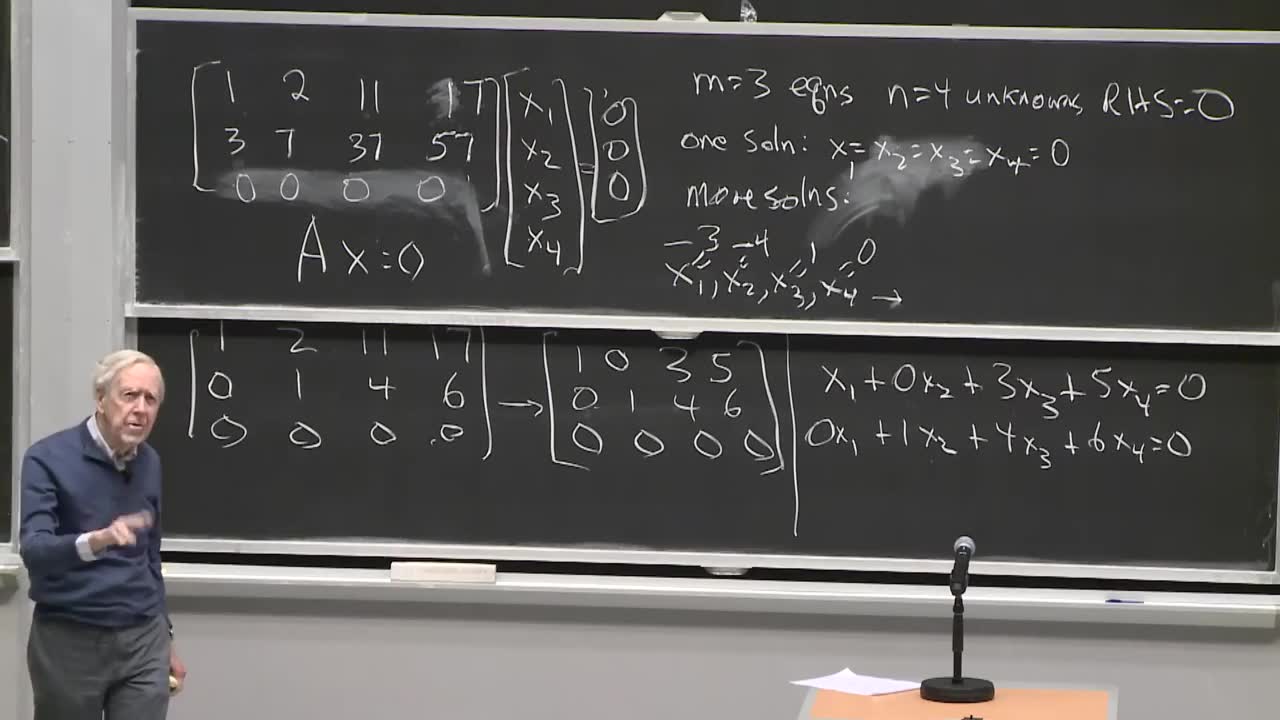 1 2 11 17 x₁ 0
3 7 37 57 x₂ = 0
0 0 0 0 x₃ 0
x₄
A x=0
m=3 eqns n=4 unknowns RHS=0
one soln: x₁=x₂=x₃=x₄=0
more solns:
-3 -4 1 0
x₁, x₂, x₃, x₄ →
1 2 11 17
0 1 4 6
0 0 0 0
→
1 0 3 5
0 1 4 6
0 0 0 0
x₁+0x₂+3x₃+5x₄=0
0x₁+1x₂+4x₃+6x₄=0